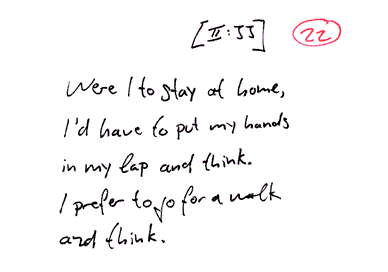 [II:55] 22
Were I to stay at home,
I'd have to put my hands
in my lap and think.
I prefer to go for a walk
and think.